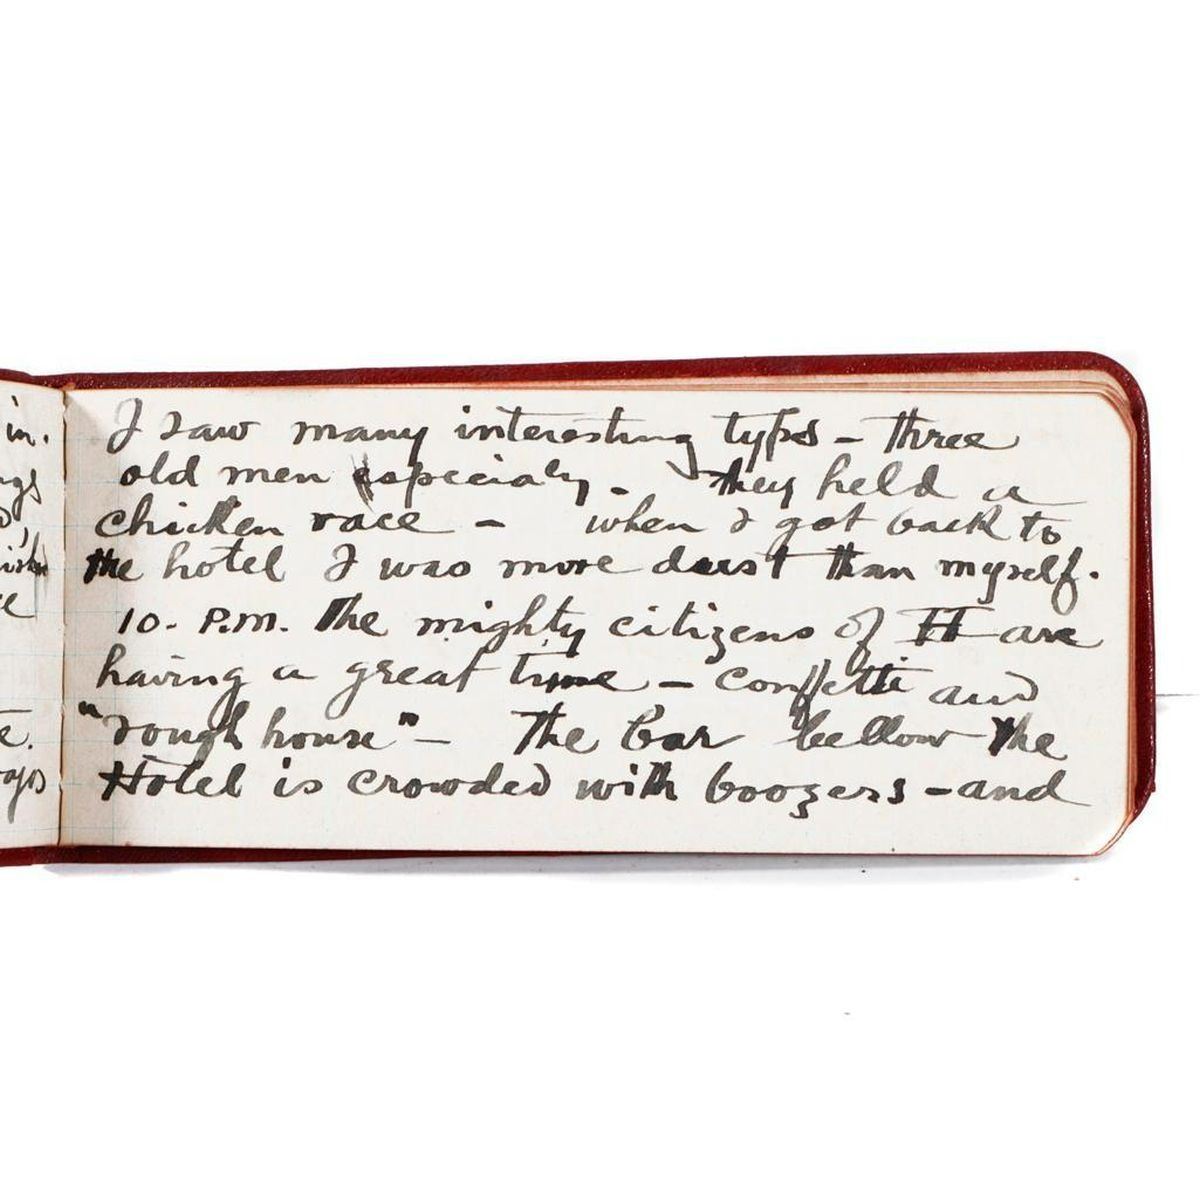 in.
I saw many interesting types – three
old men especialy. they held a
chicken race – when I got back to
the hotel I was more dust than myself.
10. P.M. The mighty citizens of H are
having a great time – confetti and
"rough house" – The bar bellow the
Hotel is crowded with boozers – and